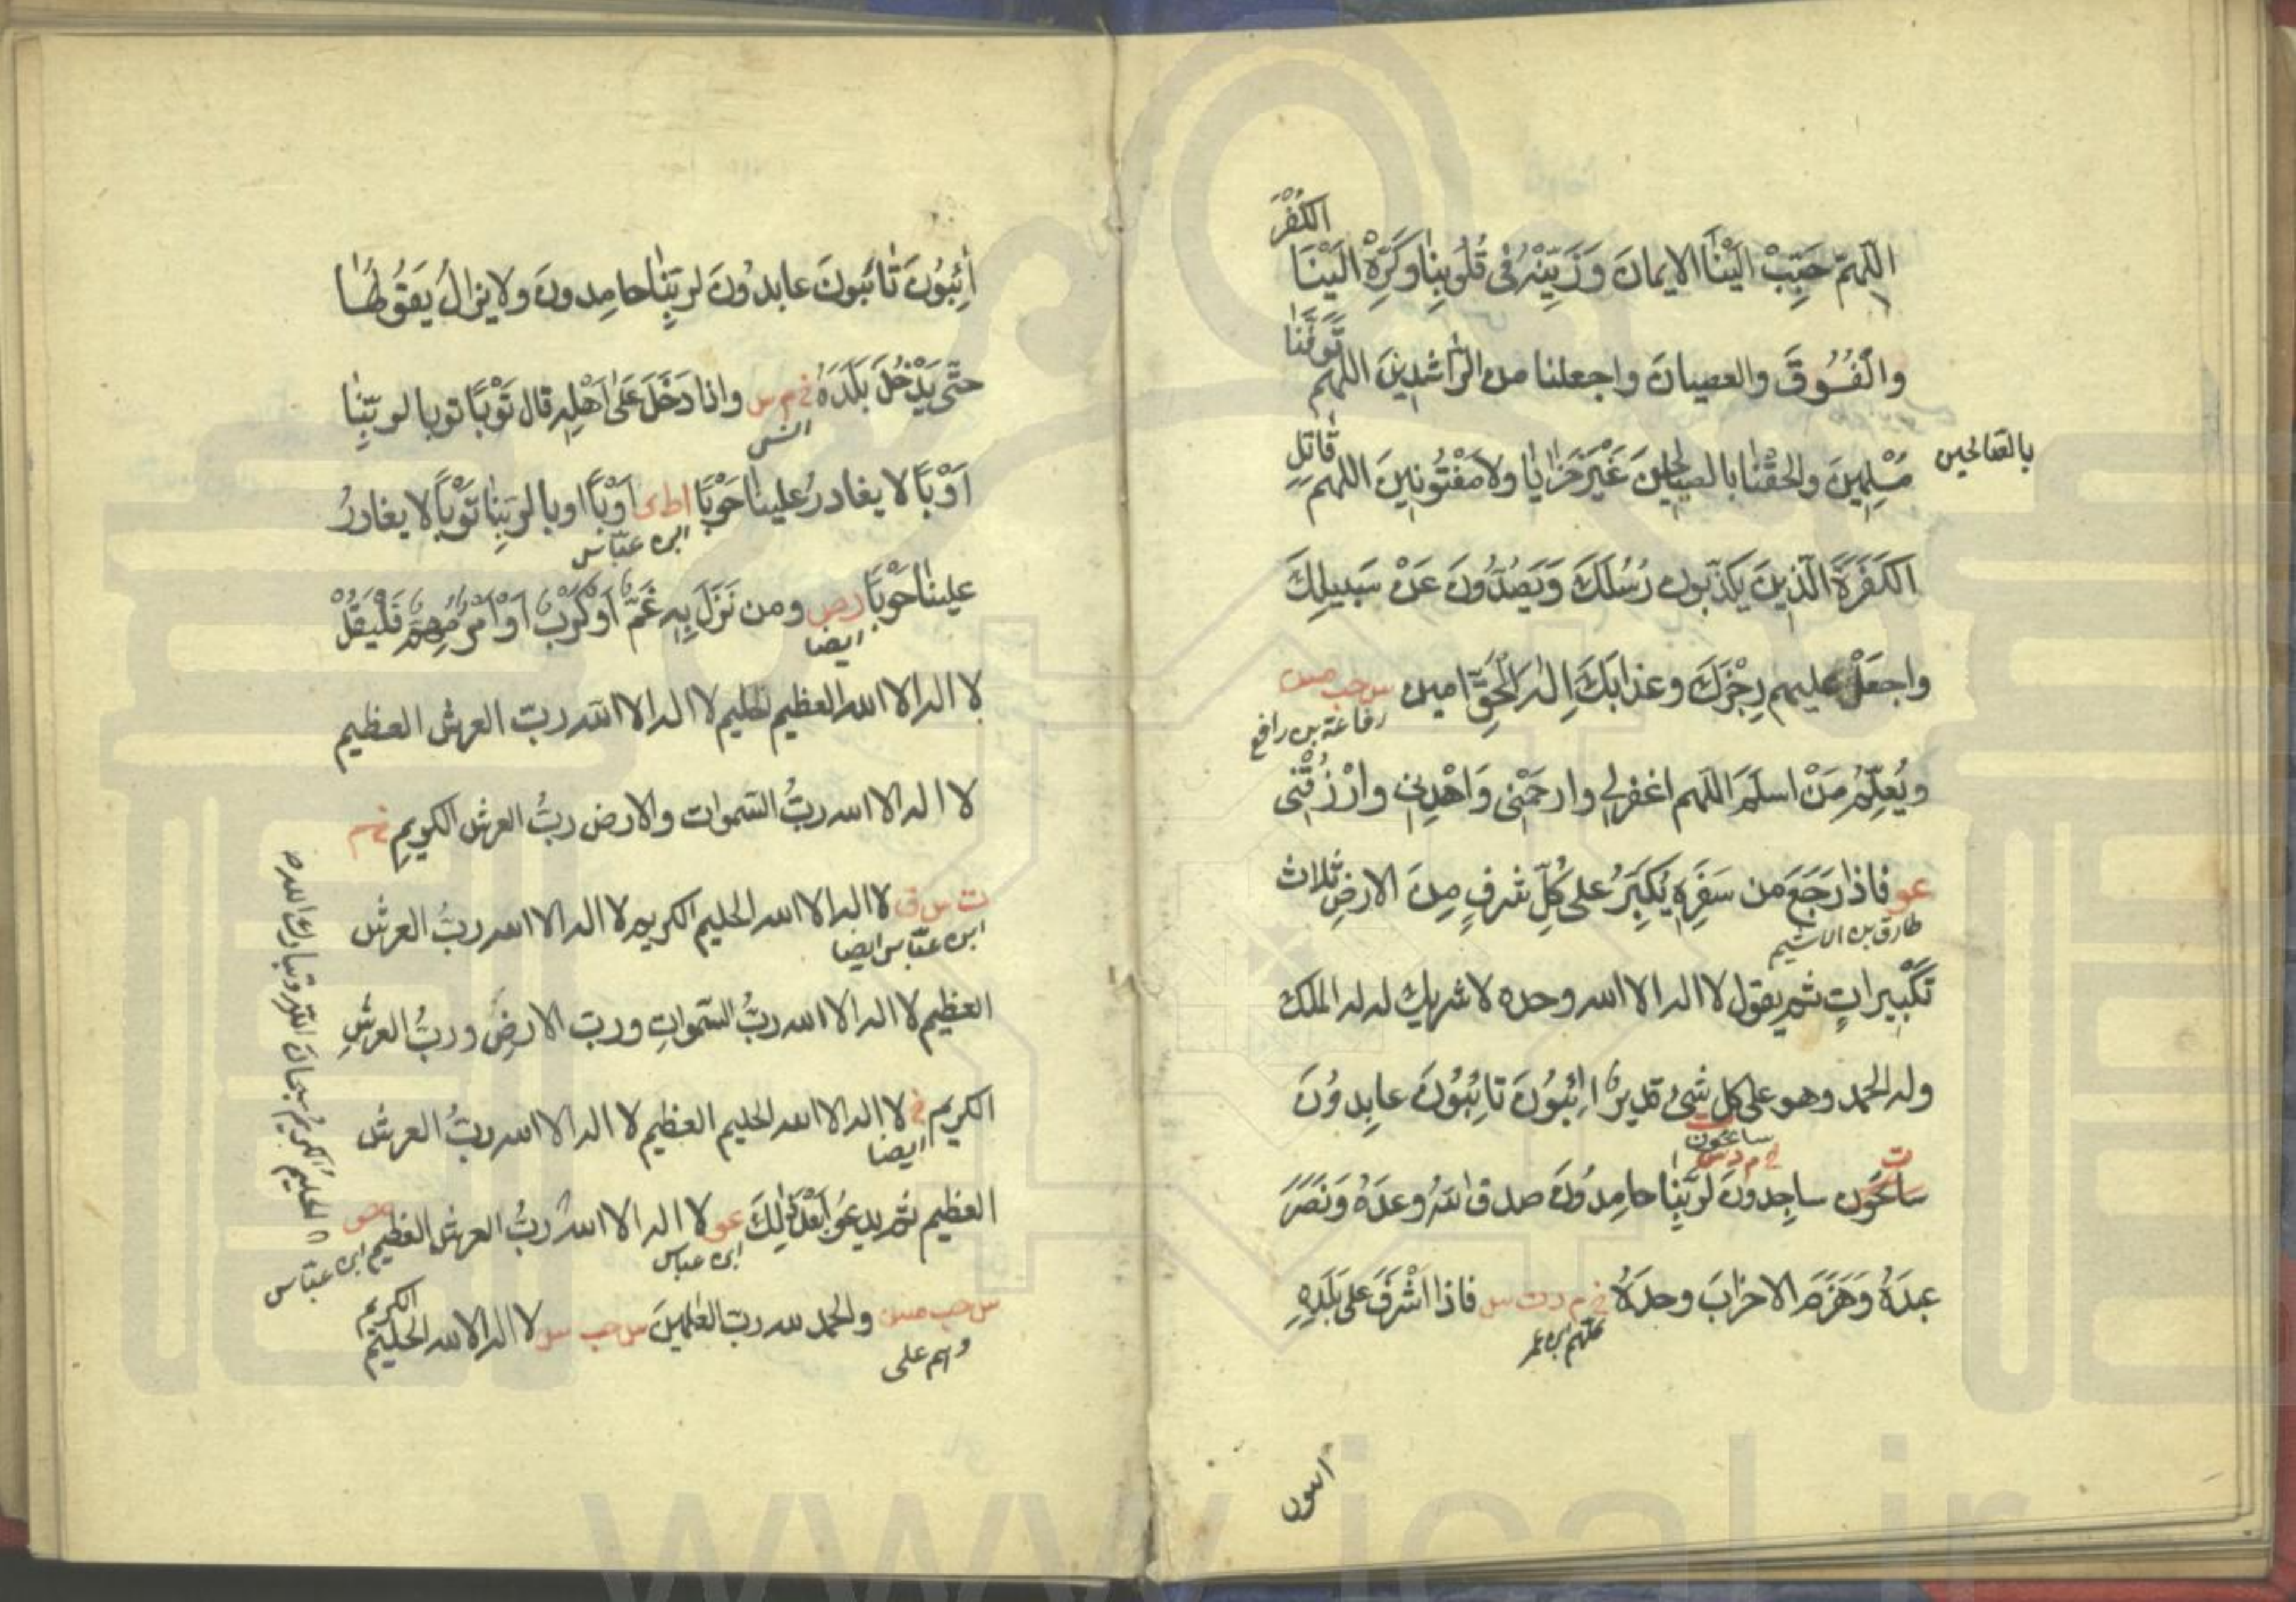 الكُفْرَ
اللّهمّ حَبِّبْ اِلَيْنَا الايمانَ وَزَيِّنْهُ فى قُلُوبِنَا وَكَرِّهْ اِلَيْنَا
تَوَفَّنَا
وَالْفُسُوقَ والعصيانَ واجعلنا من الرَّاشِدِينَ اللهم
بالصّالحين
قَاتِلِ
مُسْلِمِينَ وَالحِقْنَا بالصالحين غَيْرَ خَزَايَا ولا مَفْتُونِينَ اللهم
الكَفَرَةَ الَّذِينَ يكذّبون رُسُلَكَ وَيَصُدُّونَ عَنْ سَبِيلِكَ
واجعَلْ عليهم رِجْزَكَ وعذابَكَ اِلٰهَ الْحَقِّ امين س حب مس
رفاعة بن رافع
ويُعَلِّمُ مَنْ اسلَمَ اللّهم اغفرلى وارحَمْنِى وَاهْدِنِى وارْزُقْنِى
عو فاذا رَجَعَ من سَفَرِهِ يُكَبِّرُ على كُلِّ شرفٍ مِنَ الارضِ ثلاث
طارق بن اشيم
تَكْبِيراتٍ ثم يقول لا اله الا الله وحده لا شريك له له الملك
وله الحمد وهو على كل شَىْءٍ قديرٌ ائِبُونَ تَائِبُونَ عابِدُونَ
سائحون
ت
خ م د س
سائحُون ساجِدونَ لِرَبِّنَا حامِدُونَ صدق اللّهُ وعدَهُ وَنَصَرَ
عبدَهُ وَهَزَمَ الاحزابَ وحدَهُ خ م د ت س فاذا اَشْرَفَ على بَلَدِهِ
كلهم ابن عمر
ائبون
اٰئِبُونَ تَائبونَ عابدُونَ لِرَبِّنَا حامِدونَ ولا يزالُ يَقُولُهَا
حتّى يَدْخُلَ بَلَدَهُ خ م س واذا دَخَلَ عَلَى اَهْلِهِ قال تَوْبًا توبا لربّنا
انس
اَوْبًا لا يغادرُ علينا حَوْبًا ا ط ى اَوْبًا اوبا لِرَبِّنَا تَوْبًا لا يغادرُ
ابن عبّاس
علينا حَوْبًا ر ص ومن نَزَلَ بِهِ غَمٌّ اَوْ كَرْبٌ اَوْ اَمْرٌ مُهِمٌّ فَلْيَقُلْ
ايضا
لا اله الا الله العظيم الحليم لا اله الا الله ربّ العرش العظيم
لا اله الا الله ربُّ السّموات والارض ربُّ العرش الكريمِ خ م
ت س ق لا اله الا الله الحليم الكريم لا اله الا الله ربُّ العرش
ابن عبّاس ايضا
العظيم لا اله الا الله ربُّ السّمواتِ ورب الارضِ وربُّ العرشِ
الكريم خ لا اله الا الله الحليم العظيم لا اله الا الله ربُّ العرش
ايضا
العظيم ثم يدعُو بَعْدَ ذٰلِكَ عو لا اله الا اللهُ ربُّ العرش العظيم
ابن عباس
ابن عبّاس
الكريم
س حب مس والحمد لله ربّ العٰلمينَ س حب س لا اله الا الله الحليم
وهم على
الحليمُ الكريمُ سبحان اللّهِ وتبارك الله